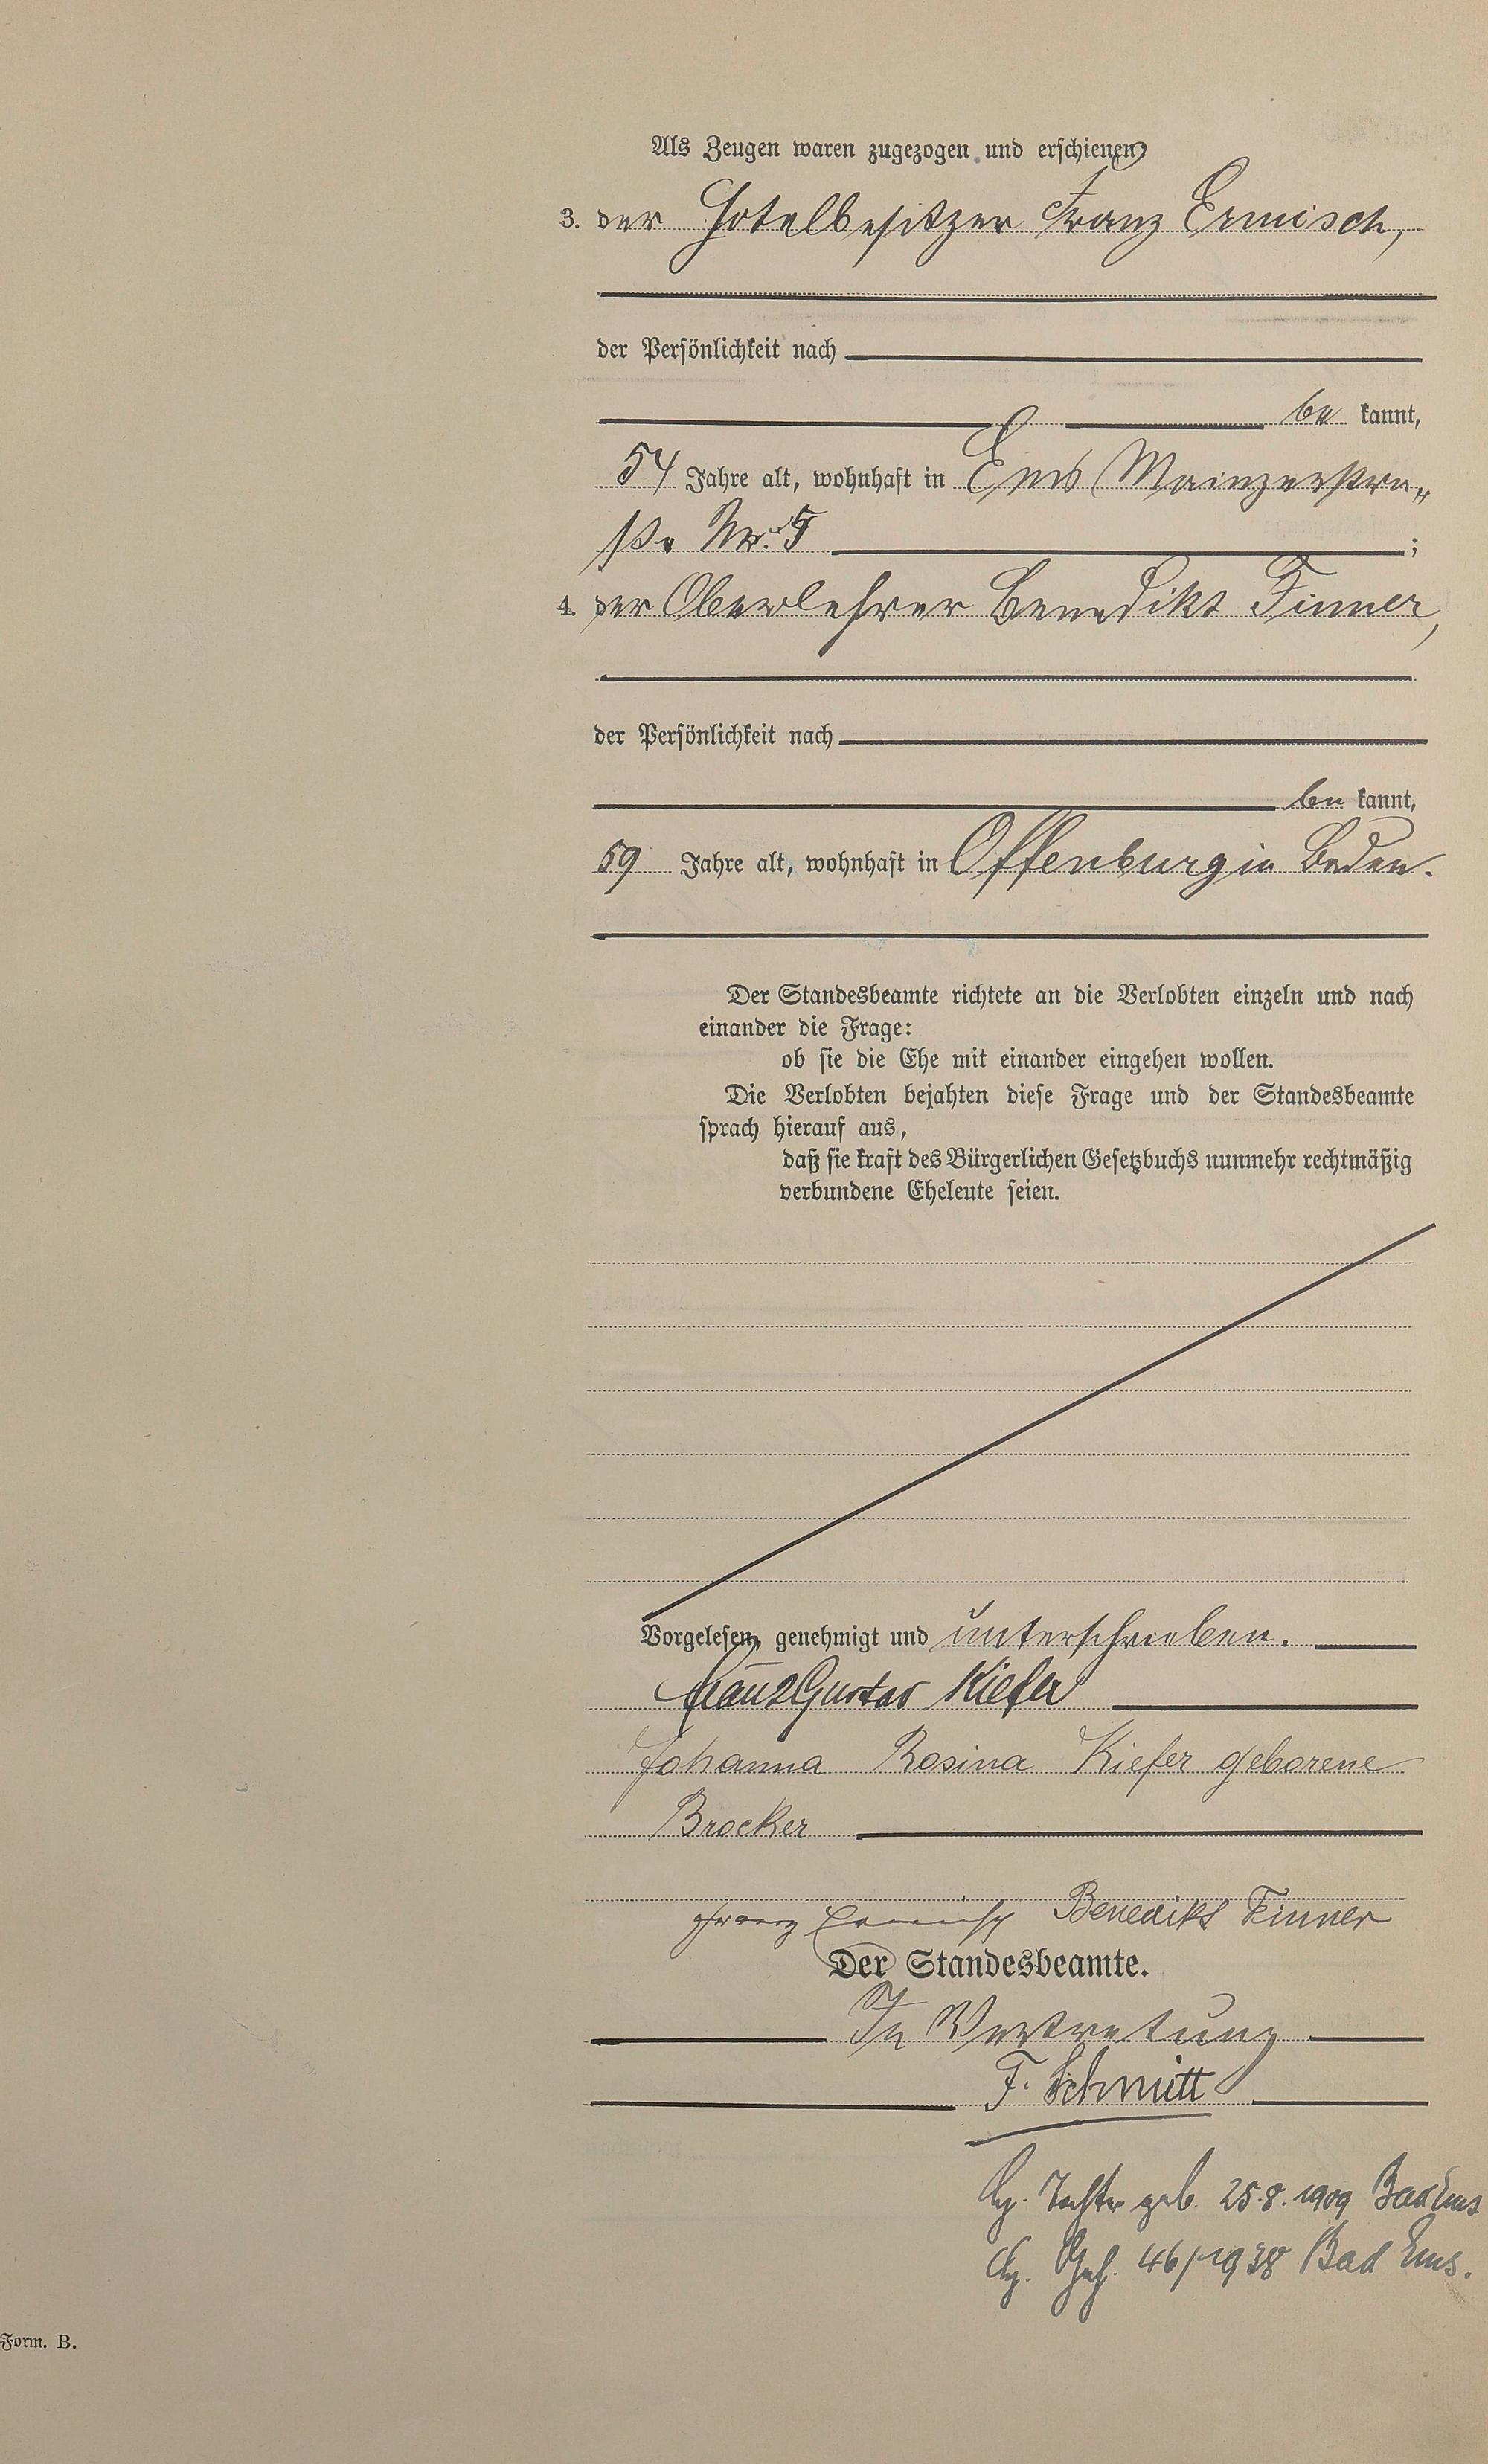 Als Zeugen waren zugezogen und erschienen,
3. der Hotelbesitzer Franz Ermisch,
der Persönlichkeit nach
be kannt,
54 Jahre alt, wohnhaft in Ems Mainzerstra„
ße Nr. 5 ;
4. der Oberlehrer Benedikt Finner,
der Persönlichkeit nach
be kannt,
59 Jahre alt, wohnhaft in Offenburg in Baden.
Der Standesbeamte richtete an die Verlobten einzeln und nach
einander die Frage:
ob sie die Ehe mit einander eingehen wollen.
Die Verlobten bejahten diese Frage und der Standesbeamte
sprach hierauf aus,
daß sie kraft des Bürgerlichen Gesetzbuchs nunmehr rechtmäßig
verbundene Eheleute seien.
Vorgelesen, genehmigt und unterschrieben.
Franz Gustav Kiefer
Johanna Rosina Kiefer geborene
Brocker
Franz Ermisch Benedikt Finner
Der Standesbeamte.
In Vertretung
F. Schmitt
Tochter geb. 25.8.1909 Bad Ems
46/1938 Bad Ems.
Form. B.